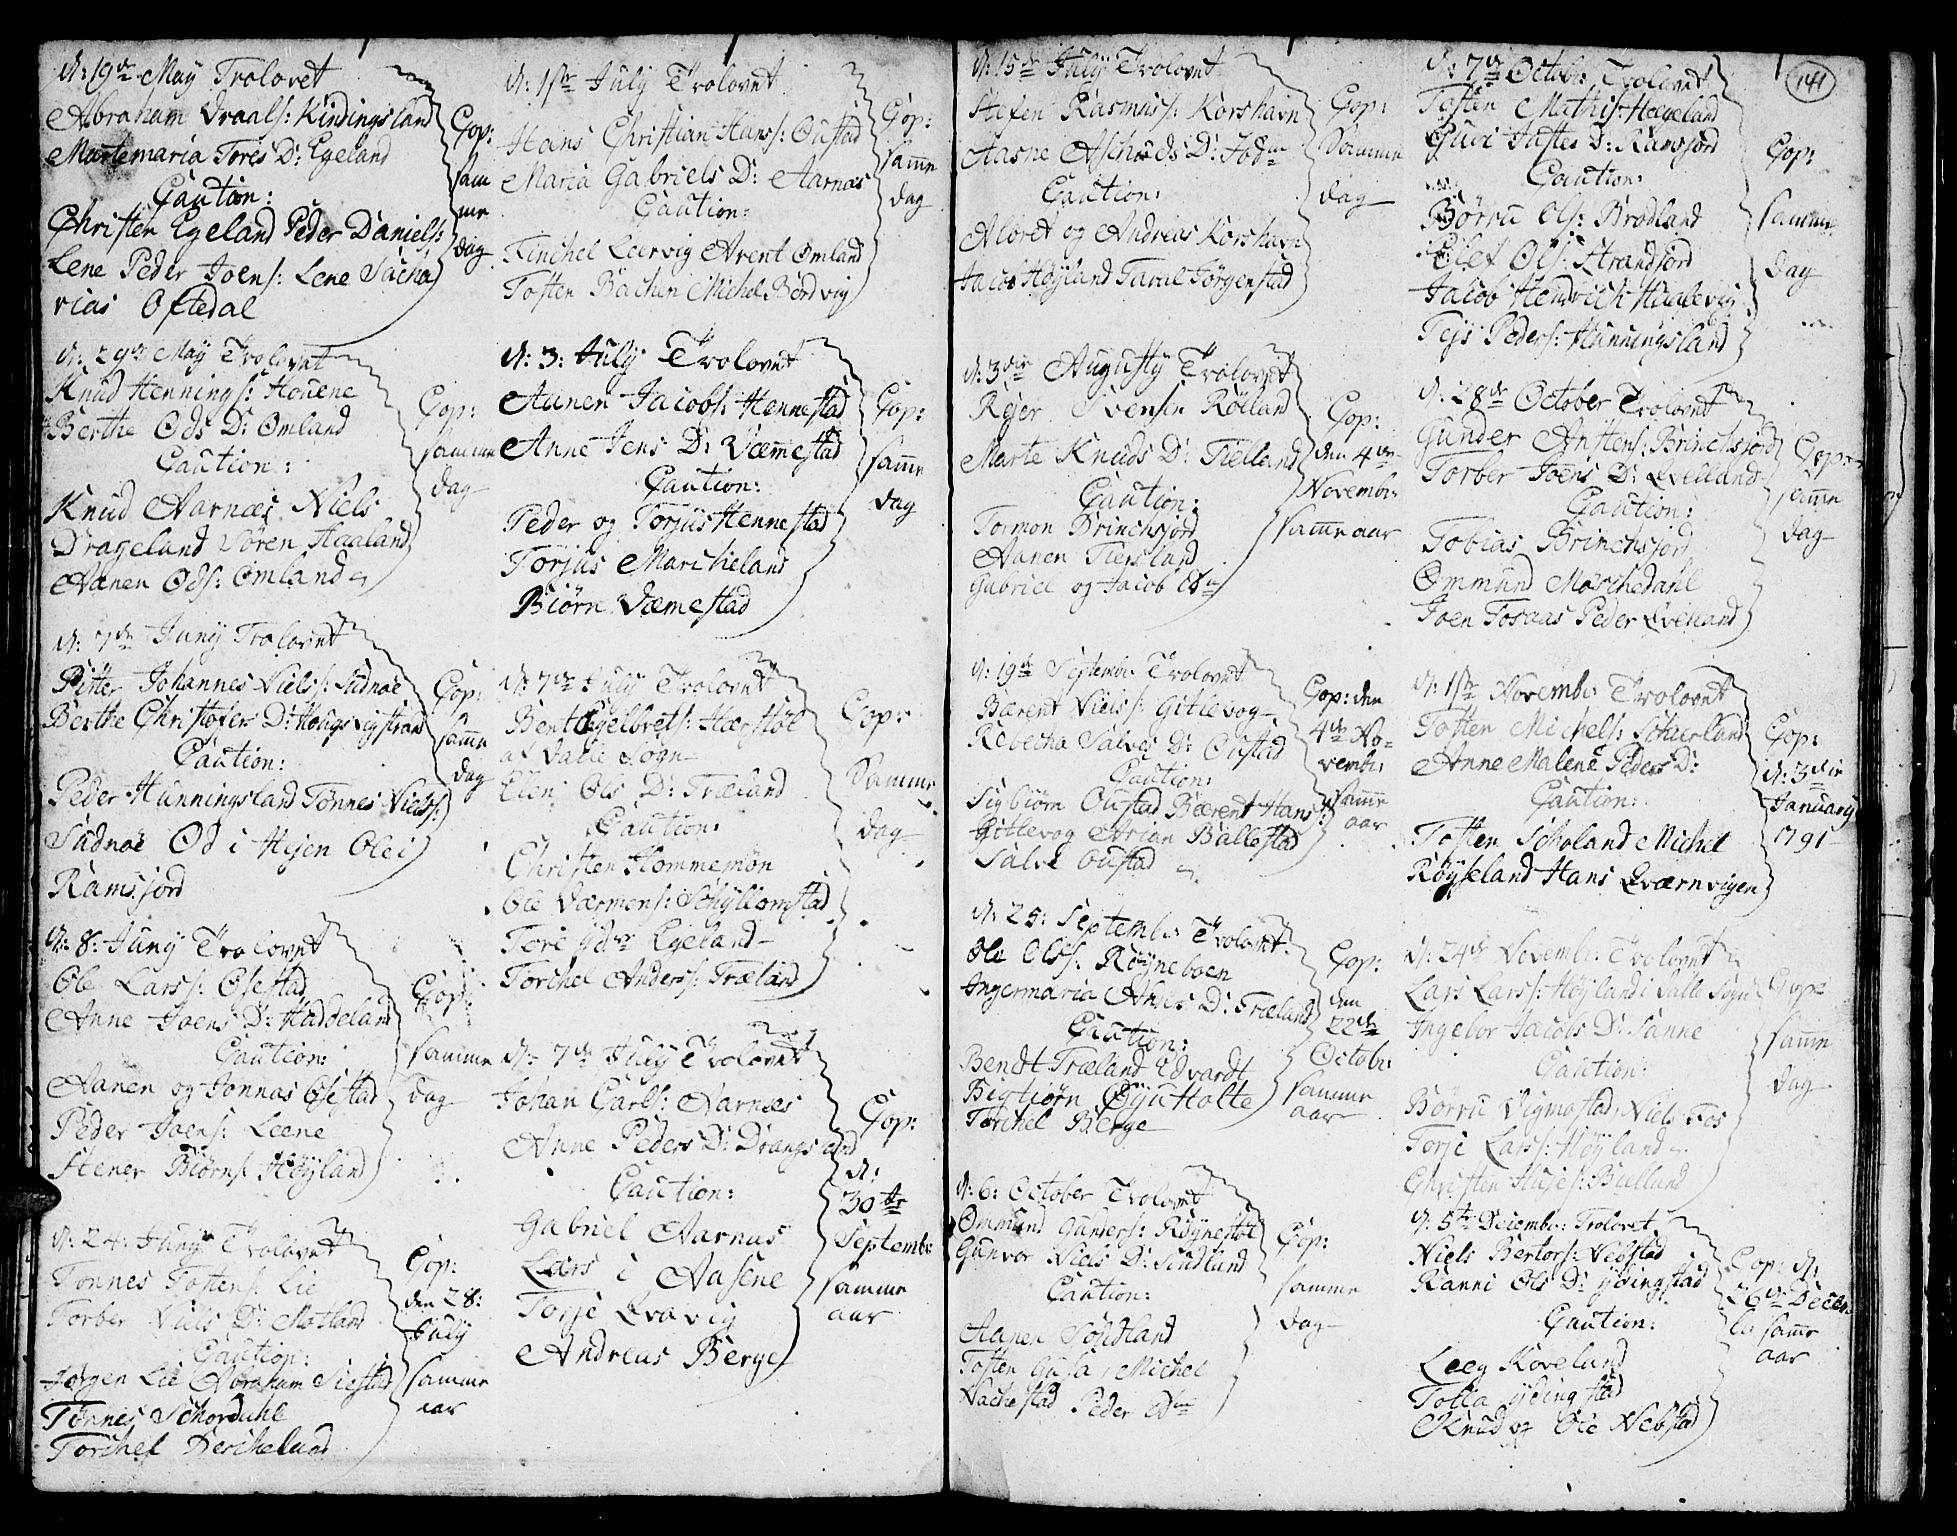 d: 19de May Trolovet
Abraham Vraals: Kindingsland
Martemaria Tores D: Egeland
Caution:
Christen Egeland Peder Daniels:
Lene Peder Joens: Lene Sacha
rias Oftedal
Cop:
sam
me
dag
d: 29de May Trolovet
Knud Hennings: Houene
Berthe Ods D: Omland
Caution:
Knud Aarnæs Niels
Drageland Søren Haaland
Aanen Ods: Omland
Cop:
samme
dag
d: 7de Juny Trolovet
Pitter Johannes Niels: Sudnøe
Berthe Christofers D:
Caution:
Peder Hunningsland Tønnes Niels:
Sudnøe Od i Hejen Olei
Ramsjord
Cop:
samme
dag
d: 8: Juny Trolovet
Ole Lars: Ofestad
Anne Joens D: Haddeland
Caution:
Aanen og Jonnas Ofestad
Peder Joens: Leene
Stener Biørns: Høyland
Cop:
samme
dag
d: 24: Juny Trolovet
Tønnes Tostens: Lie
Torber Niels D: Motland
Caution:
Jørgen Lie Abraham Siestad
Tønnes Schordahl
Torchel Dercheland
Cop:
den 28:
July
samme
aar
d: 1ste July Trolovet
Hans Christian Hans: Oustad
Maria Gabriels D: Aarnæs
Caution:
Tinchel Leervig Arent Omland
Tosten Bachen Michel Bordvig
Cop:
samme
dag
d: 3: July Trolovet
Aanen Jacobs: Hennestad
Anne Jens D: Væmestad
Caution:
Peder og Torjus Hennestad
Torjus Marcheland
Biørn Væmestad
Cop:
samme
dag
d: 7de July Trolovet
Bent Egelbrets: Hærstøl
af Valle Sogn
Elen Ols D: Træland
Caution:
Christen Hommemøn
Ole Værmons: Schyllomstad
Tore Egeland
Torchel Anders: Træland
Cop:
samme
dag
d: 7de July Trolovet
Johan Carls: Aarnæs
Anne Peders D: Drangsland
Caution:
Gabriel Aarnæs
Lars i Aasene
Torje Qvavig
Andreas Berge
Cop:
d:
30te
Septembr
samme
aar
141
d: 15de July Trolovet
Stefen Rasmus: Korshavn
Aasne Aschilds D: Jodm
Caution:
Aloret og Andreas Korshavn
Jacob Høyland Taral Jørgenstad
Cop:
samme
dag
d: 3die Augusty Trolovet
Rejer Svensen Røiland
Marte Knuds D: Tielland
Caution:
Tormon Brinchsjord
Aanen Tiersland
Gabriel og Jacob
Cop:
den 4de
Novembr
samme aar
d: 19de Septembr Trolovet
Bærent Niels: Gitlevog
Rebecha Salves D: Oustad
Caution:
Sigbiørn Oustad Bærent Hans:
Gitlevog Arian Ballestad
Salve Oustad
Cop: den
4de No-
vembr
samme
aar
d: 25: Septembr Trolovet
Ole Ols: Røyneboen
Ingermaria Ahles D: Træland
Caution:
Bendt Træland Edvardt
Bigtiørn Øyuholte
Torchel Berge
Cop:
den
22de
Octobr
samme
aar
d: 6: October Trolovet
Ommund Gunders: Røynestøl
Gunvor Niels D: Sindland
Caution:
Aanen Sondland
Tosten Michel
Vachestad Peder
Cop:
samme
dag
d: 7de Octobr: Trolovet
Tosten Mathis: Hageland
Guri Tostes D: Ramsjord
Caution:
Børru Ols: Brodland
Elef Ols: Strandsord
Jacob Hendrich: Haalevig
Tejs Peders: Hunningsland
Cop:
samme
dag
d. 28de October Trolovet
Gunder Anstens: Brinchsjord
Torber Joens D: Qvelland
Caution:
Tobias Brinchsjord
Ommund Morchedahl
Joen Fosaas Peder Qvelland
Cop:
samme
dag
d: 1ste Novembr Trolovet
Tosten Michels: Schierland
Anne Malene Peders D:
Caution:
Tosten Scholand Michel
Røyseland Hans Qværnvigen
Cop:
d: 3die
January
1791
d: 24de Novembr: Trolovet
Lars Lars: Høyland i Valle Sogn
Ingebor Jacobs D: Sanne
Caution:
Børru Vigmostad, Niels Fos
Torje Lars: Høyland
Christen Bulland
Cop:
samme
dag
d: 5te Decembr: Trolovet
Niels Bertors: Nebstad
Ranni Ols D: Ydingstad
Caution:
Leeg Koveland
Tolla Ydingstad
Knud og Ole Nebstad
Cop: d:
26de Decem
br samme
aar